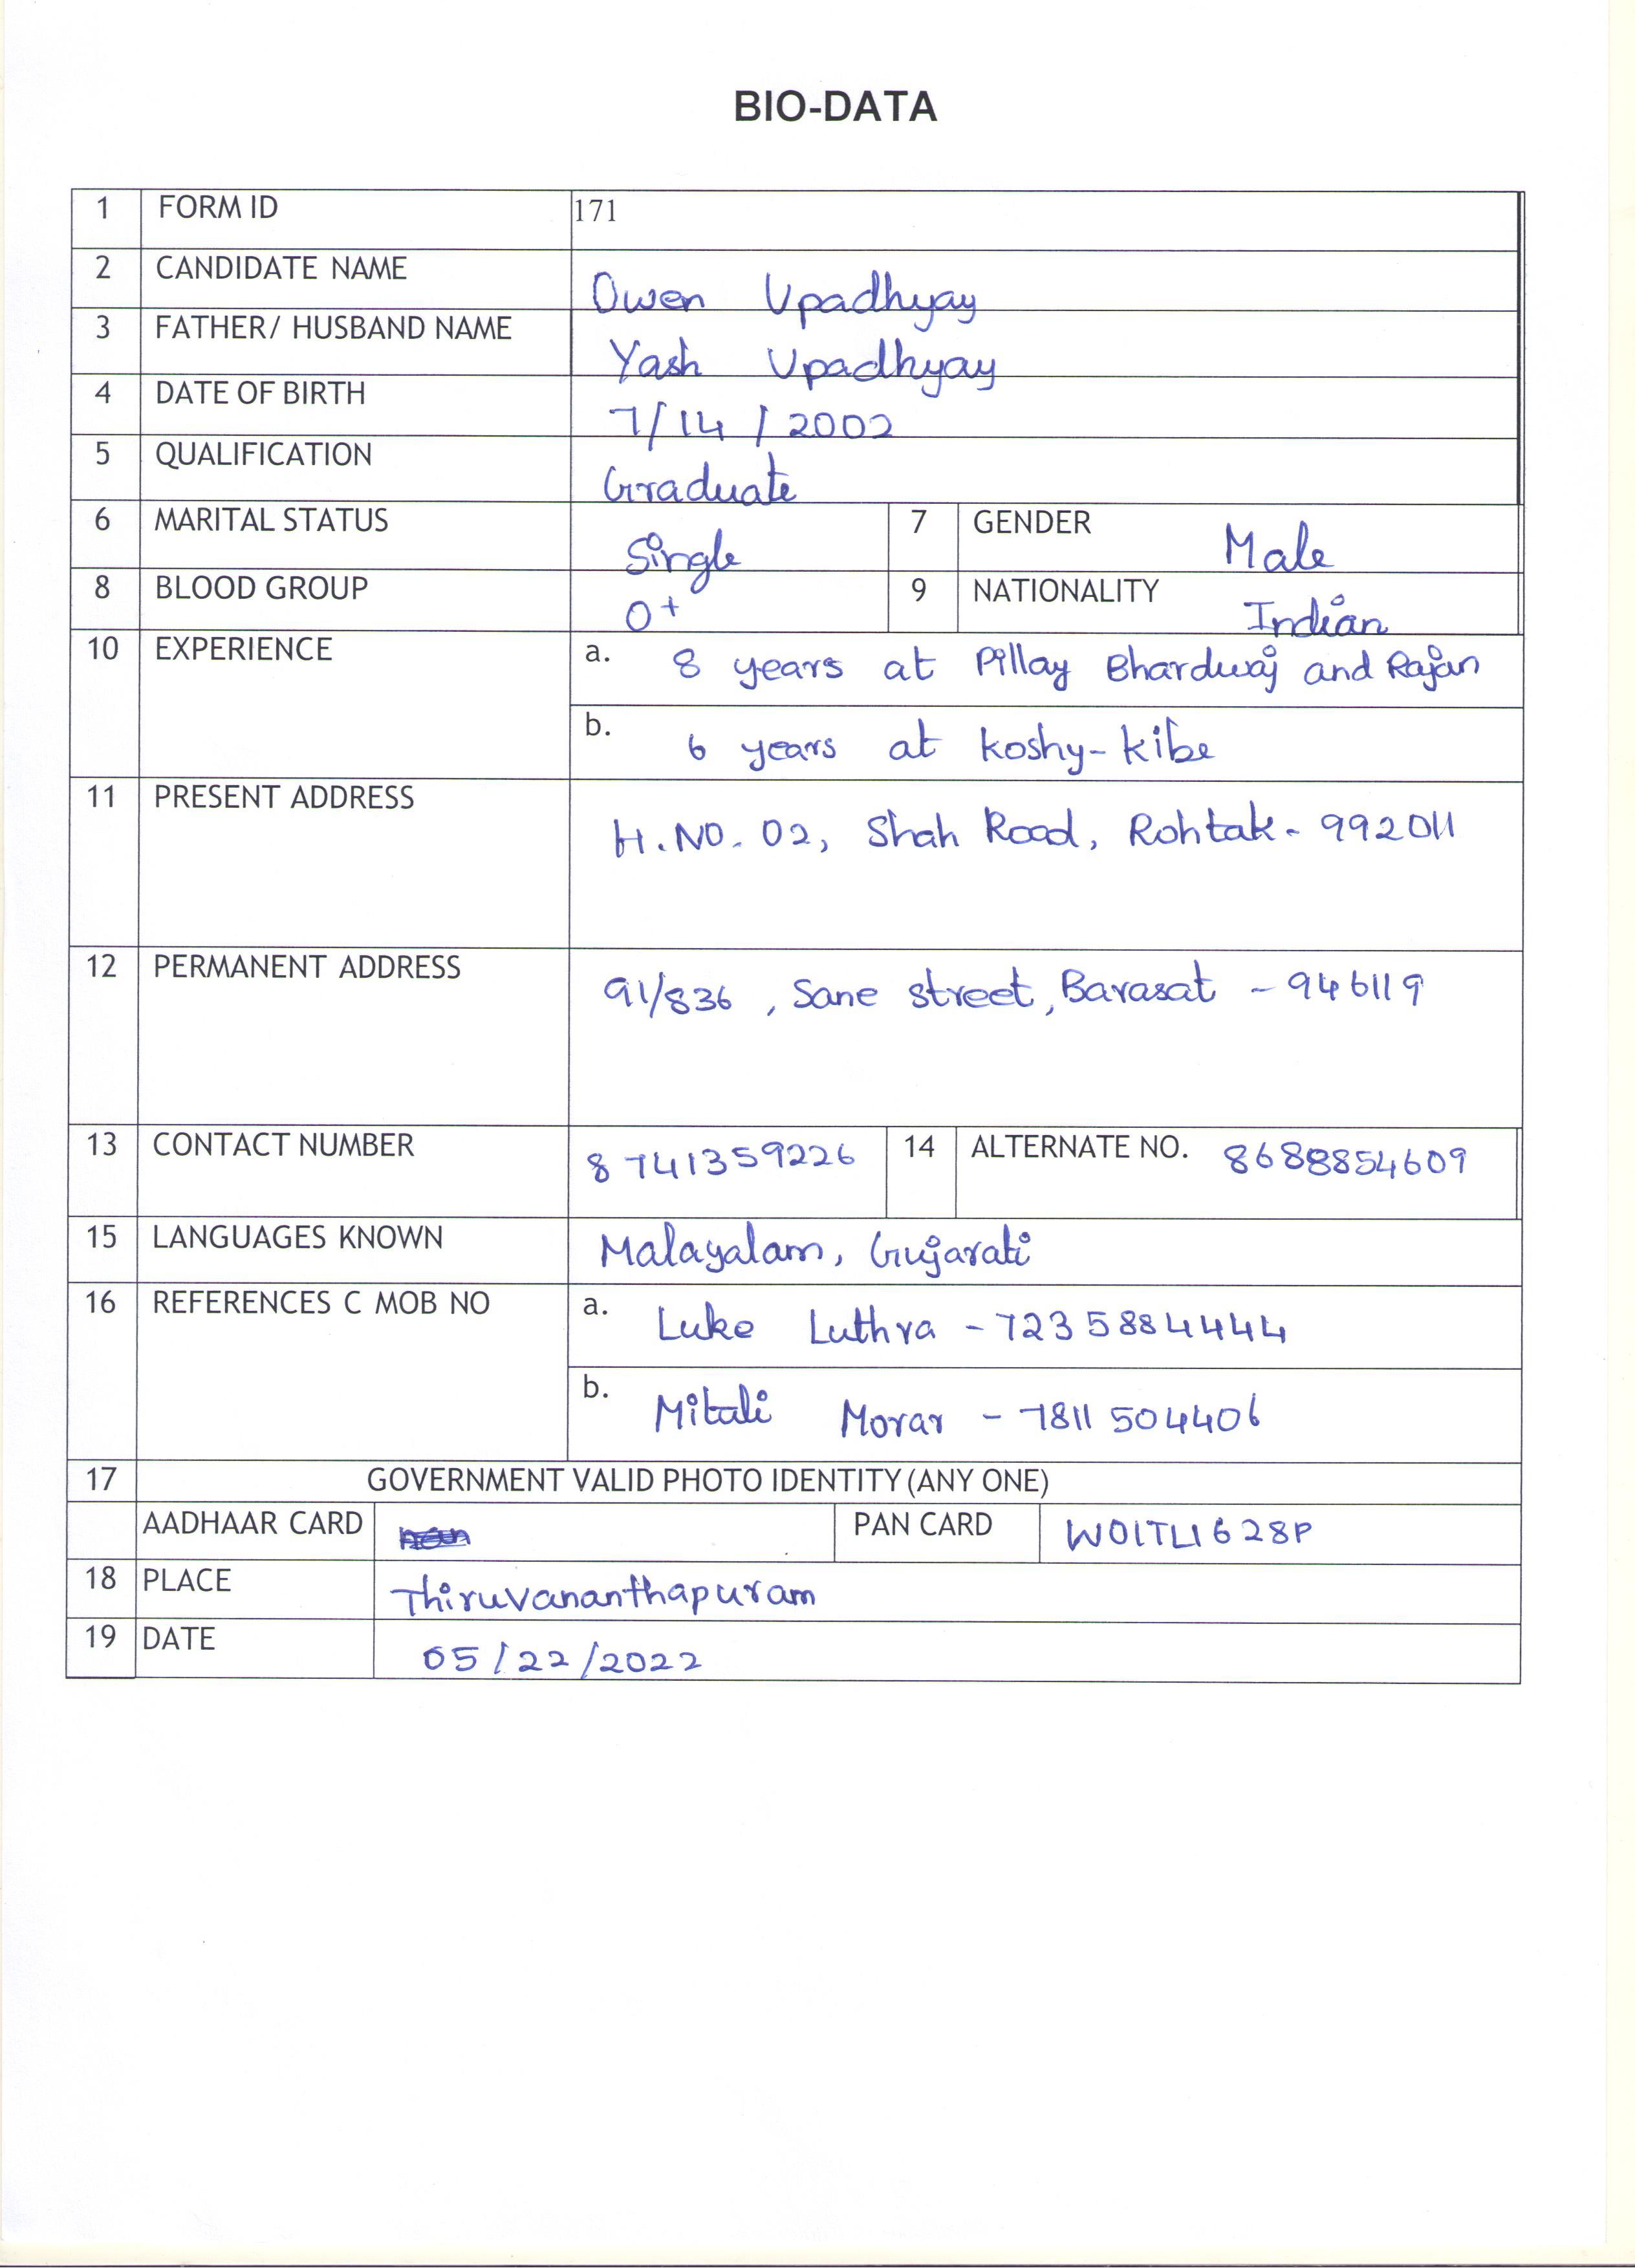 BIO-DATA
1 FORM ID 171
2 CANDIDATE NAME Owen Upadhyay
3 FATHER/ HUSBAND NAME Yash Upadhyay
4 DATE OF BIRTH 7/14/2002
5 QUALIFICATION Graduate
6 MARITAL STATUS Single 7 GENDER Male
8 BLOOD GROUP O+ 9 NATIONALITY Indian
10 EXPERIENCE a. 8 years at Pillay Bhardwaj and Rajan
b. 6 years at koshy-kibe
11 PRESENT ADDRESS H.NO. 02, Shah Road, Rohtak- 992011
12 PERMANENT ADDRESS 91/836, Sane street, Barasat - 946119
13 CONTACT NUMBER 8741359226 14 ALTERNATE NO. 8688854609
15 LANGUAGES KNOWN Malayalam, Gujarati
16 REFERENCES C MOB NO a. Luke Luthra - 7235884444
b. Mitali Morar - 7811504406
17 GOVERNMENT VALID PHOTO IDENTITY (ANY ONE)
AADHAAR CARD PAN CARD
18 PLACE Thiruvananthapuram
19 DATE 05/22/2022